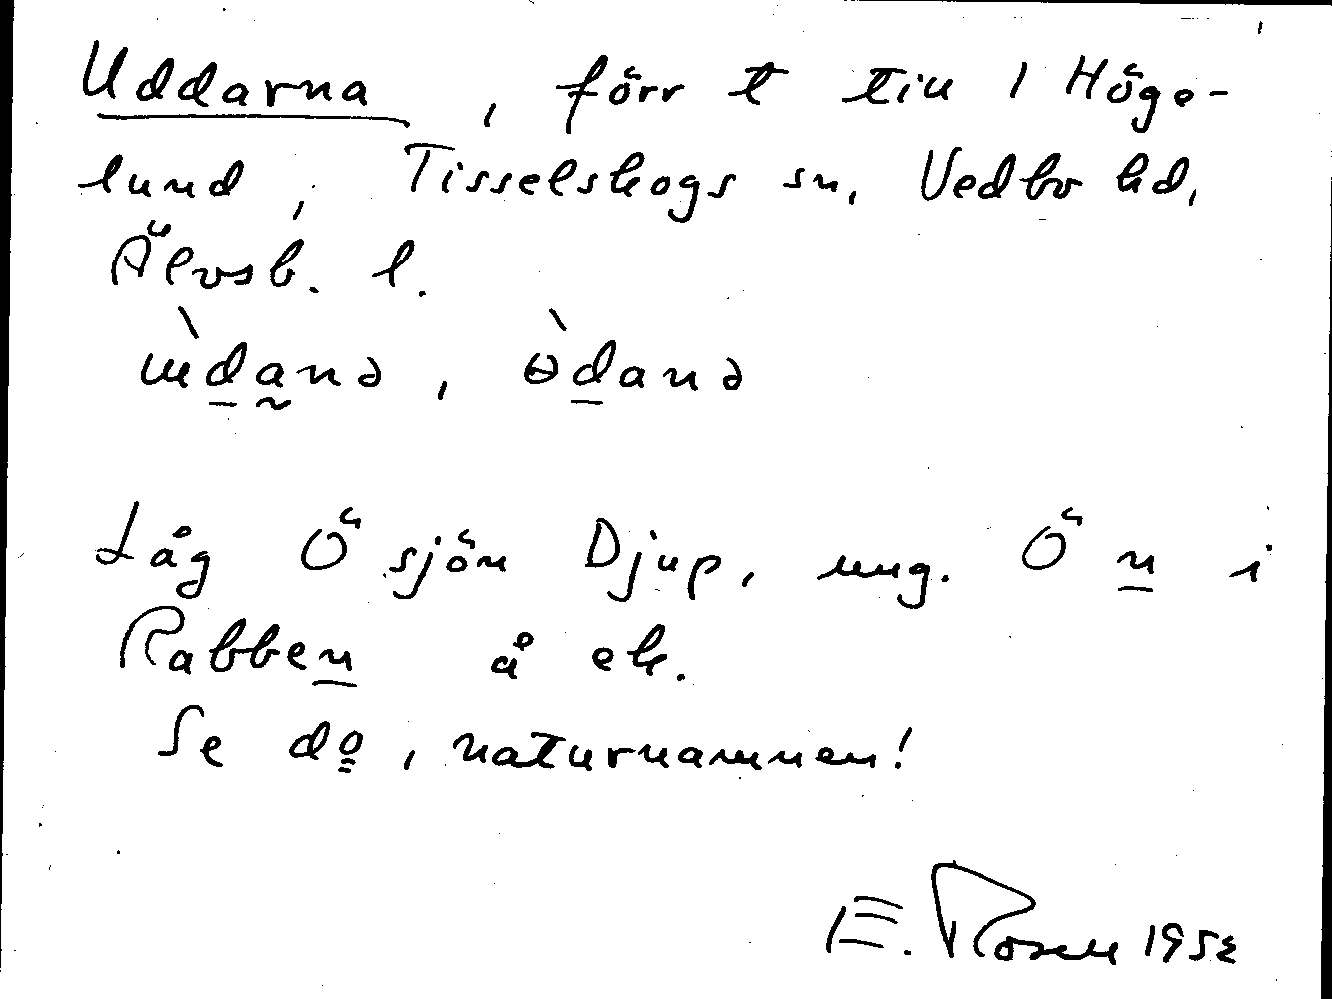 Uddarna, förr t till 1 Höge-
lund, Tisselskogs sn, Vedbo hd,
Älvsb. l.
ɯ̀danə, ɵ̀danə
Låg Ö sjön Djup, ung. Ö n i
Rabben å ek.
Se do, naturnamnen!
E. Rosell 1952